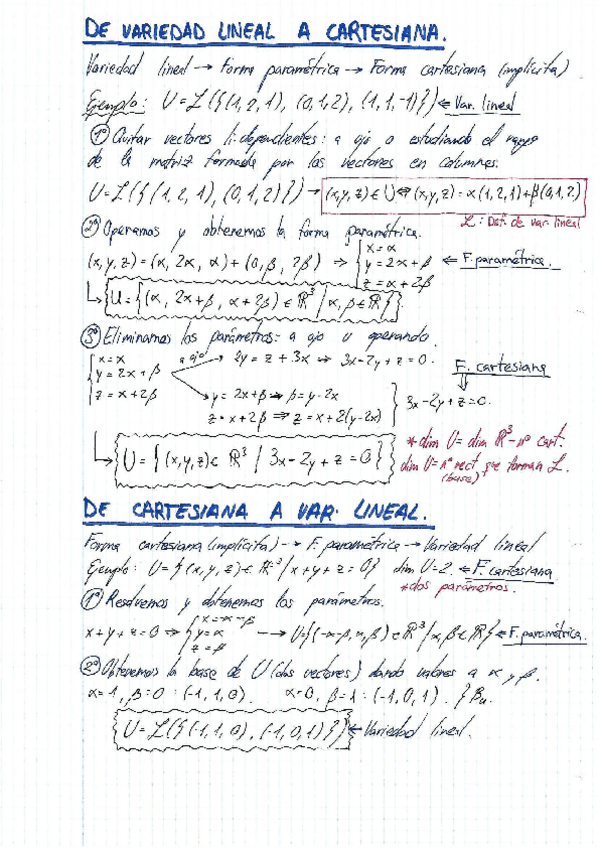 DE VARIEDAD LINEAL A CARTESIANA.
Variedad lineal → Forma paramétrica → Forma cartesiana (implícita)
Ejemplo: U = L({(1,2,1), (0,1,2), (1,1,-1)}) ← Var. lineal
① Quitar vectores l. dependientes: a ojo o estudiando el rango
de la matriz formada por los vectores en columnas.
U = L({(1,2,1), (0,1,2)}) → (x,y,z) ∈ U ⇔ (x,y,z) = α(1,2,1)+β(0,1,2)
L: Def. de var. lineal
② Operamos y obtenemos la forma paramétrica.
(x,y,z) = (α, 2α, α) + (0, β, 2β) ⇒ { x = α
y = 2α + β ← F. paramétrica.
z = α + 2β
U = {(α, 2α+β, α+2β) ∈ ℝ³ / α, β ∈ ℝ}
③ Eliminamos los parámetros: a ojo u operando.
{ x = α
y = 2α + β
z = α + 2β
a ojo → 2y = z + 3x → 3x - 2y + z = 0.
y = 2x + β ⇒ β = y - 2x
z = x + 2β ⇒ z = x + 2(y - 2x)
} 3x - 2y + z = 0.
F. cartesiana
U = {(x,y,z) ∈ ℝ³ / 3x - 2y + z = 0}
* dim U = dim ℝ³ - nº cart.
dim U = nº vect que forman L.
(base)
DE CARTESIANA A VAR. LINEAL.
Forma cartesiana (implícita) → F. paramétrica → Variedad lineal
Ejemplo: U = {(x,y,z) ∈ ℝ³ / x + y + z = 0} dim U = 2 ← F. cartesiana
* dos parámetros.
① Resolvemos y obtenemos los parámetros.
x + y + z = 0 ⇒ { x = -α - β
y = α
z = β
→ U = {(-α-β, α, β) ∈ ℝ³ / α, β ∈ ℝ} ← F. paramétrica.
② Obtenemos la base de U (dos vectores) dando valores a α y β.
α = 1, β = 0 : (-1, 1, 0). α = 0, β = 1 : (-1, 0, 1). } Bu.
U = L({(-1, 1, 0), (-1, 0, 1)}) ← Variedad lineal.